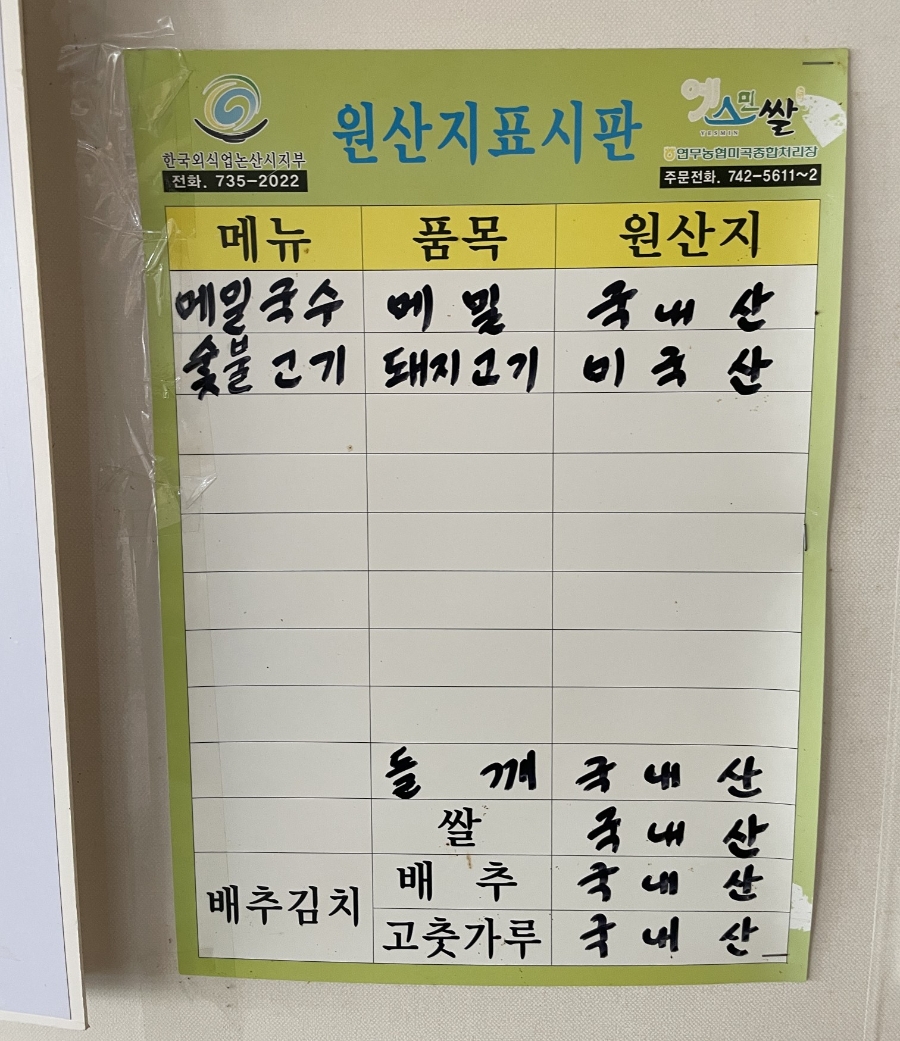 한국외식업논산시지부
전화. 735-2022
원산지표시판
예스민쌀
YESMIN
연무농협미곡종합처리장
주문전화. 742-5611~2
메뉴 품목 원산지
메밀국수 메밀 국내산
숯불고기 돼지고기 미국산
들깨 국내산
쌀 국내산
배추김치 배추 국내산
고춧가루 국내산